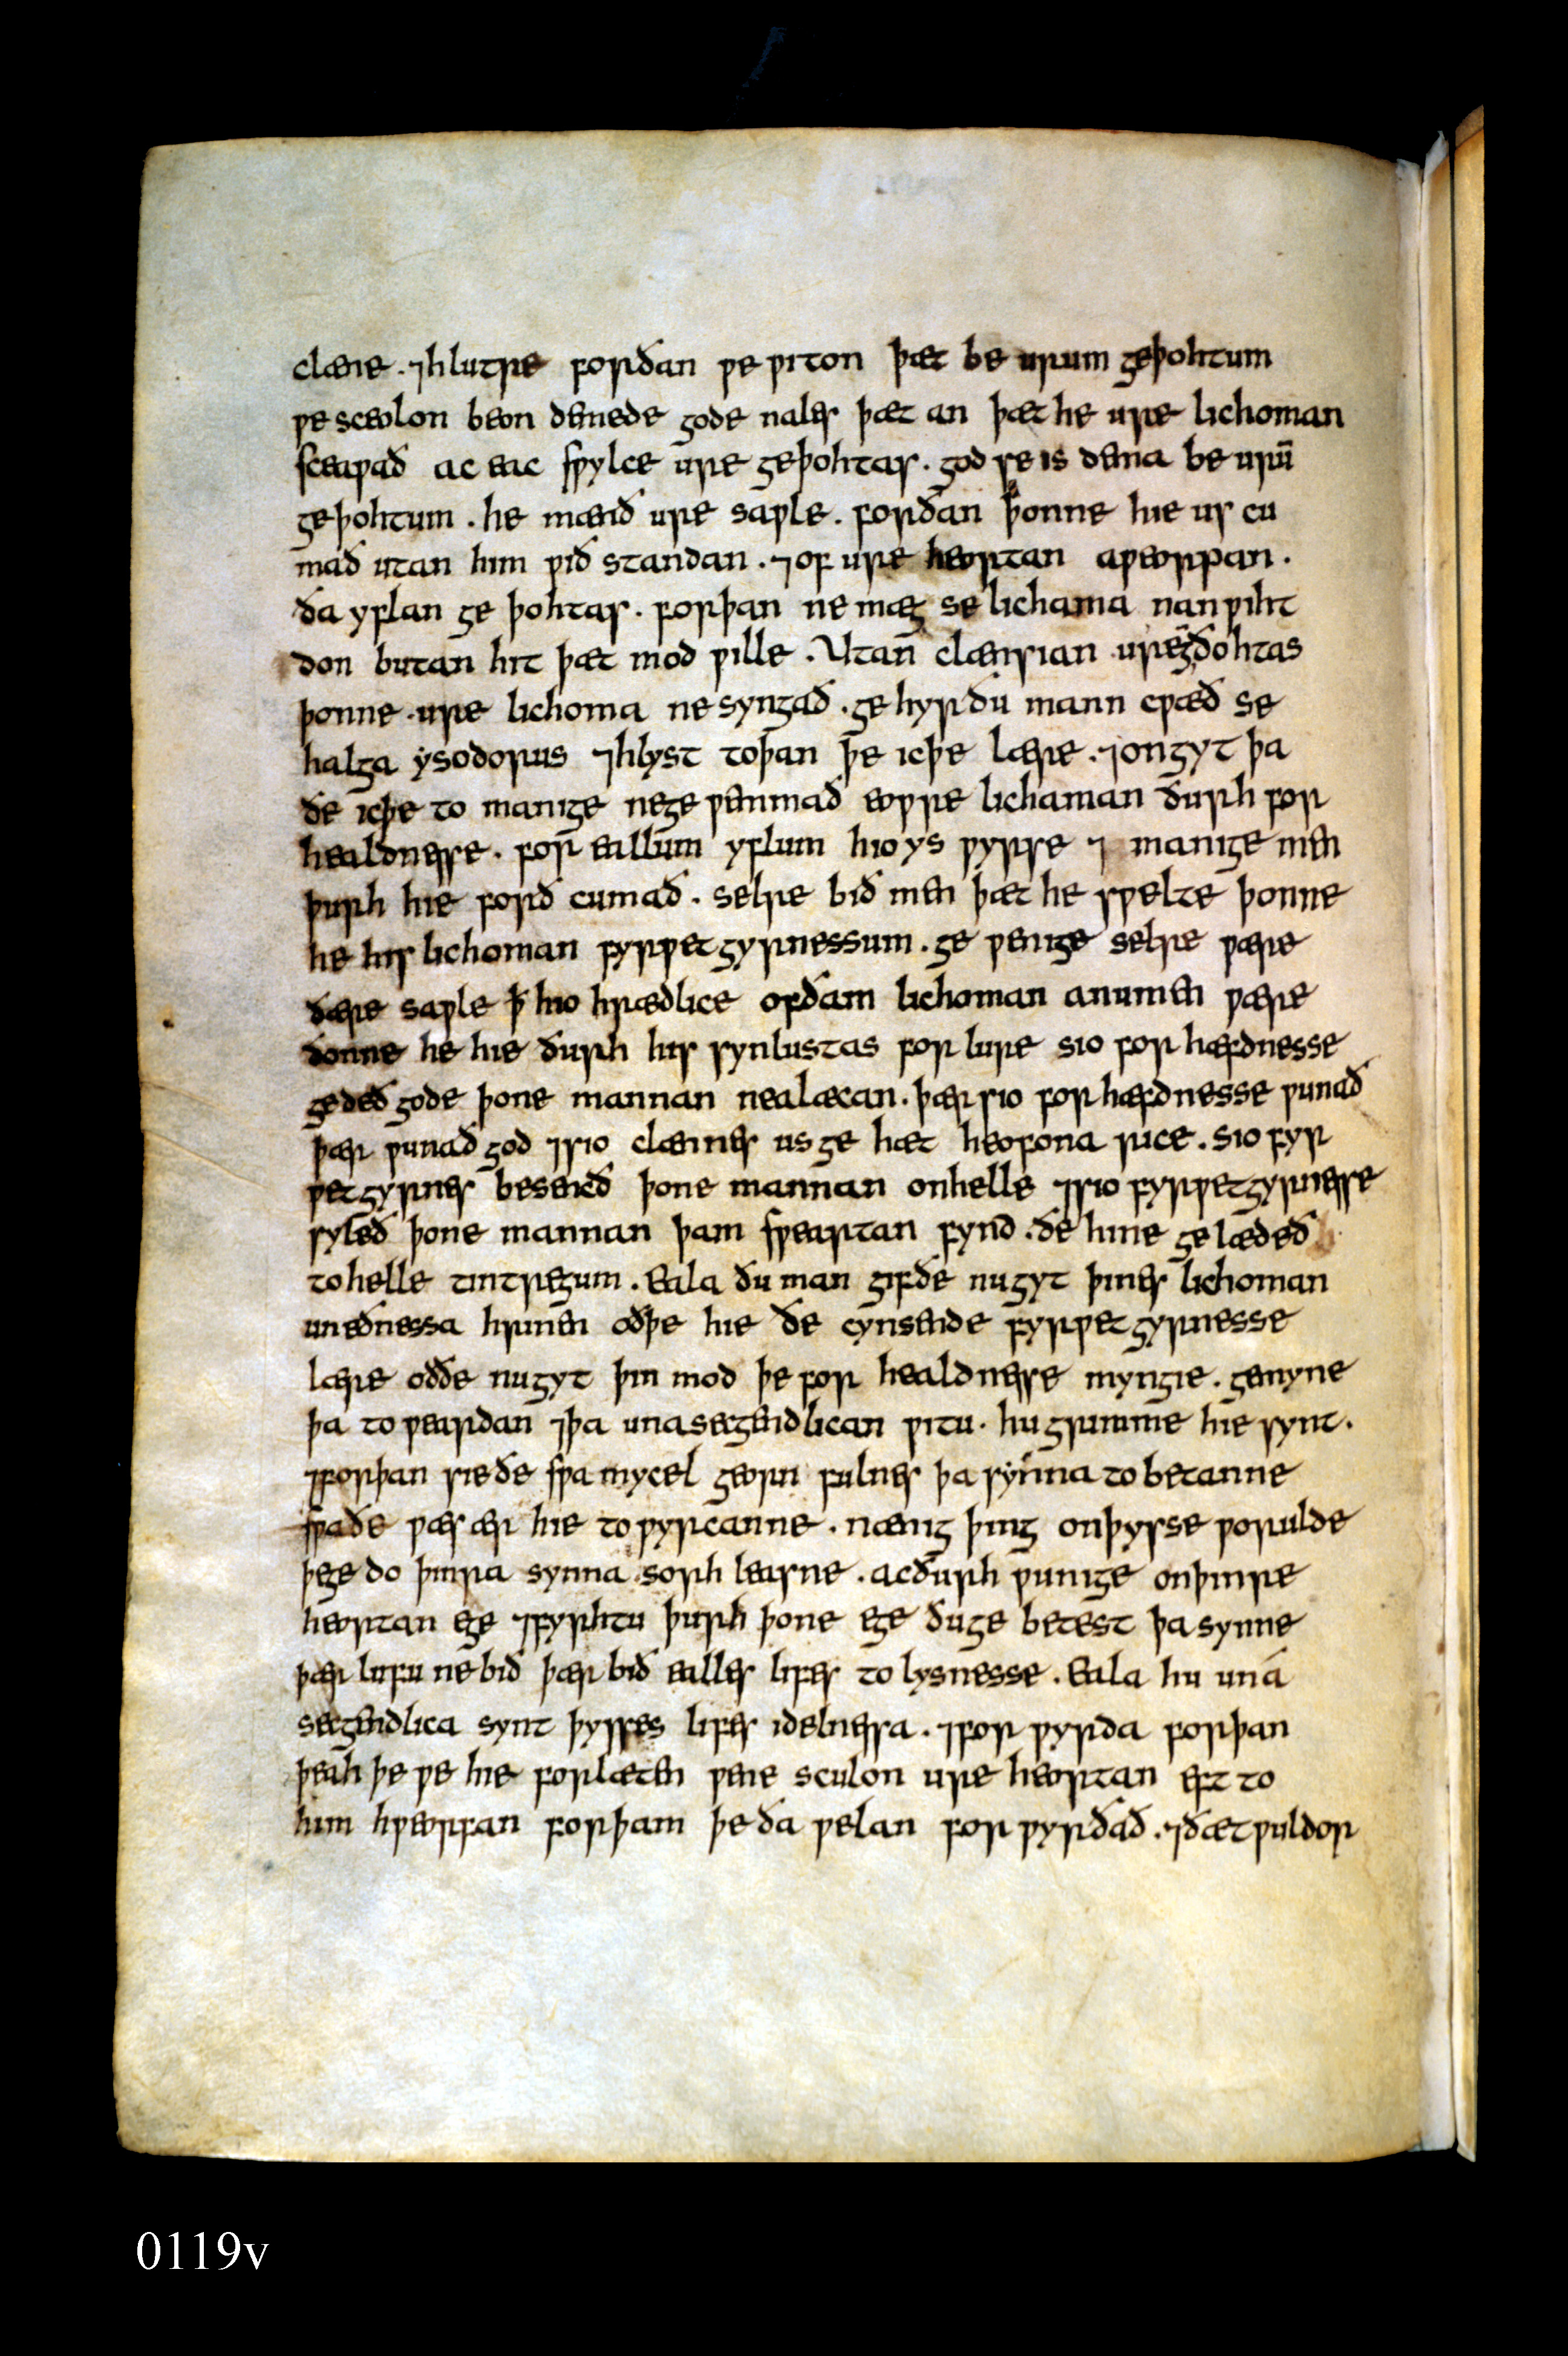 clæne . ⁊hlutre forðan ƿe ƿiton þæt be urum geþohtum
ƿe sceolon beon demede gode nales þæt an þæt he ure lichoman
sceaƿað ac eac sƿylce ure geþohtas . god se is dema be urū
geþohtum . he mænð ure saƿle . forðan þonne hie us cu
mað utan him ƿið standan . ⁊of ure heortan aƿeorpan .
ða yflan ge þohtas . forþan ne mæg se lichama nan ƿiht
don butan hit þæt mod ƿille . Utan clænsian ure gðohtas
þonne ure lichoma ne syngað . ge hyr ðu mann cƿæð se
halga ysodorus ⁊hlyst toþan þe icþe lære . ⁊ongyt þa
ðe icþe to manige nege ƿemmað eoƿre lichaman ðurh for
healdnesse . for eallum yflum hio ys ƿyrse ⁊ manige men
þurh hie forð cumað . selre bið men þæt he sƿelte þonne
he his lichoman fyrƿet gyrnessum . ge ƿemge selre ƿære
ðære saƿle ꝥ hio hrædlice ofðam lichoman anumen ƿære
ðonne he hie ðurh his synlustas for lure sio for hæfdnesse
gedeð gode þone mannan nealæcan . þær sio for hæfdnesse ƿunað
þær ƿunað god ⁊sio clænnes us ge hæt heofona rice . sio fyr
ƿetgyrnes besencð þone mannan onhelle ⁊sio fyrƿetgyrnesse
syleð þone mannan þam sƿeartan fynd . ðe hine ge lædeð
tohelle tintregum . Eala ðu man gifðe nugyt þines lichoman
uneðnessa hrinen oðþe hie ðe cynsende fyrƿet gyrnesse
lære oððe nugyt þin mod þe for healdnesse myngie . gemyne
þa toƿeardan ⁊þa unasegendlican ƿitu . hu grimme hie synt .
⁊forþan sie ðe sƿa mycel georn fulnes þa synna to betanne
sƿaðe ƿæs ær hie toƿyrcanne . nænig þing onþysse ƿorulde
þege do þinra synna sorh leasne . acðurh ƿunige onþinre
heortan ege ⁊fyrhtu þurh þone ege ðuge betest þa synne
þær lufu ne bið þær bið ealles lifes to lysnesse . Eala hu una
segendlica synt þysses lifes idelnessa . ⁊for ƿyrda forþan
þeah þe ƿe hie forlæten ƿene sculon ure heortan eft to
him hƿeorfan forþam þe ða ƿelan for ƿyrðað . ⁊ðætƿuldor
0119v